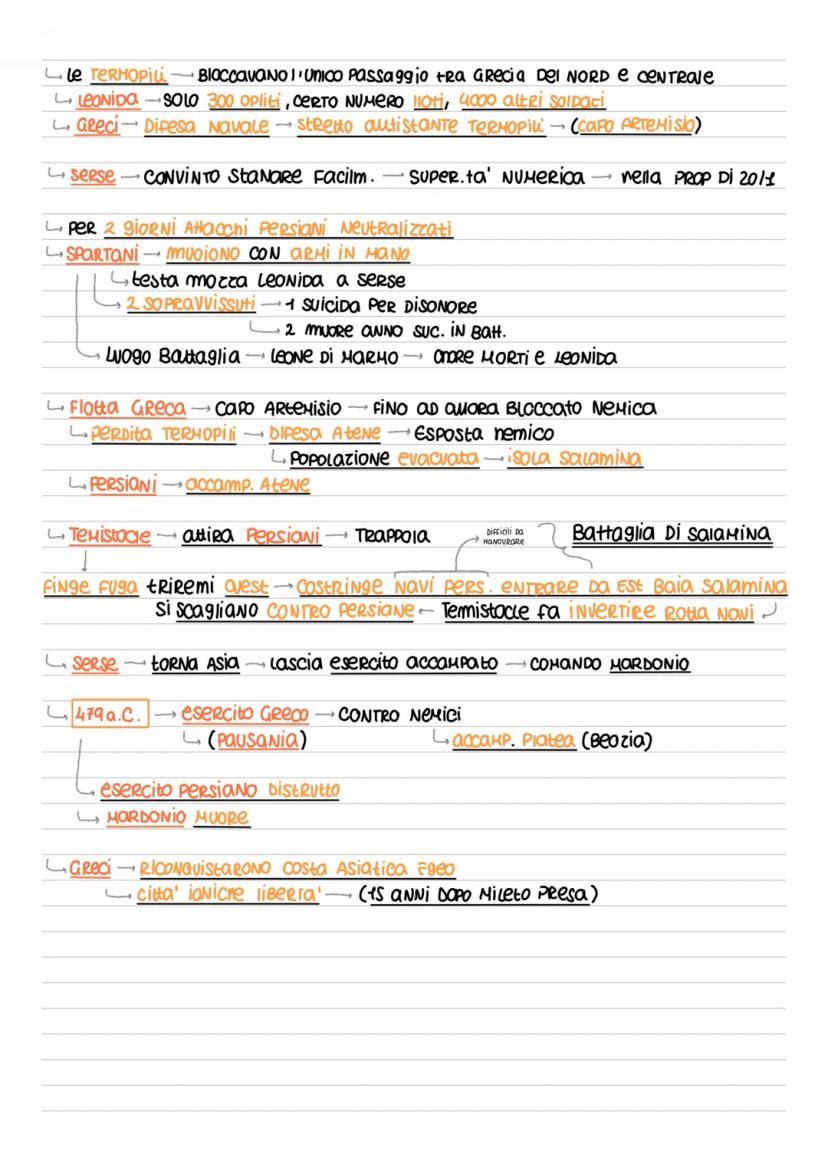 ↳ le TERMOPILI → BLOCCAVANO l'UNICO PASSAGGIO tRA GRECIA DEL NORD e CENTRALE
↳ LEONIDA → SOLO 300 OPLITI, CERTO NUMERO ILOTI, 4000 altRI SOLDATI
↳ GRECI → DIFESA NAVALE → StREttO antistante TERMOPILI → (CAPO ARTEMISIO)
↳ SERSE → CONVINTO StANARE FACILM. → SUPER.ta' NUMERICA → nella PROP DI 20/1
↳ PER 2 GIORNI AttACCHI PERSIANI NEUTRALIZZATI
↳ SPARTANI → MUOIONO CON ARMI IN MANO
↳ testa mozza LEONIDA a SERSE
↳ 2 SOPRAVVISSUTI → 1 SUICIDA PER DISONORE
↳ 2 MUORE ANNO SUC. IN BATT.
↳ LUOGO BATTAGLIA → LEONE DI MARMO → ONORE MORTI E LEONIDA
↳ FLOTTA GRECA → CAPO ARTEMISIO → FINO AD ALLORA BLOCCATO NEMICA
↳ PERDITA TERMOPILI → DIFESA ATENE → ESPOSTA NEMICO
↳ POPOLAZIONE EVACUATA → ISOLA SALAMINA
↳ PERSIANI → ACCAMP. ATENE
↳ TEMISTOCLE → attira PERSIANI → TRAPPOLA DIFFICILI DA MANOVRARE BATTAGLIA DI SALAMINA
FINGE FUGA tRIREMI OVEST → COSTRINGE NAVI PERS. ENTRARE DA EST BAIA SALAMINA
SI SCAGLIANO CONTRO PERSIANE ← TEMISTOCLE FA INVERTIRE ROTTA NAVI ↲
↳ SERSE → TORNA ASIA → LASCIA ESERCITO ACCAMPATO → COMANDO MARDONIO
↳ 479 a.C. → ESERCITO GRECO → CONTRO NEMICI
↳ (PAUSANIA) ↳ ACCAMP. PLATEA (BEOZIA)
↳ ESERCITO PERSIANO DISTRUTTO
↳ MARDONIO MUORE
↳ GRECI → RICONQUISTARONO COSTA ASIATICA EGEO
↳ CITTA' IONICHE LIBERTA' → (15 ANNI DOPO MILETO PRESA)